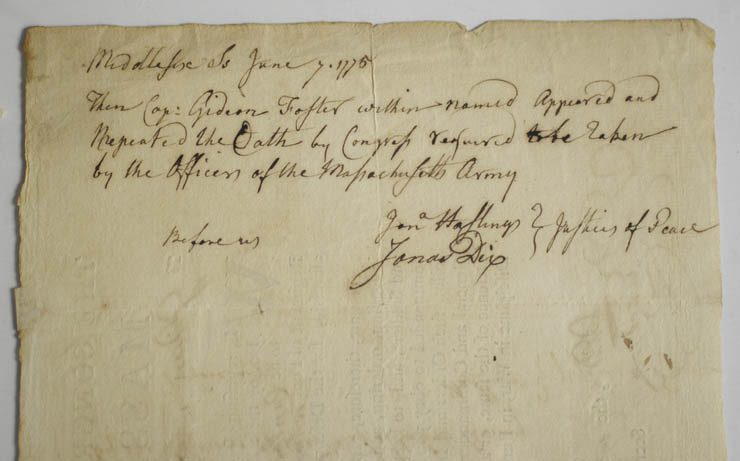 Middlesex Ss June 7. 1775
Then Cap: Gideon Foster within named Appeared and
Repeated the Oath by Congress required to be Taken
by the Officers of the Massachusetts Army
Before us
Jona Hastings } Justices of Peace
Jonas Dix